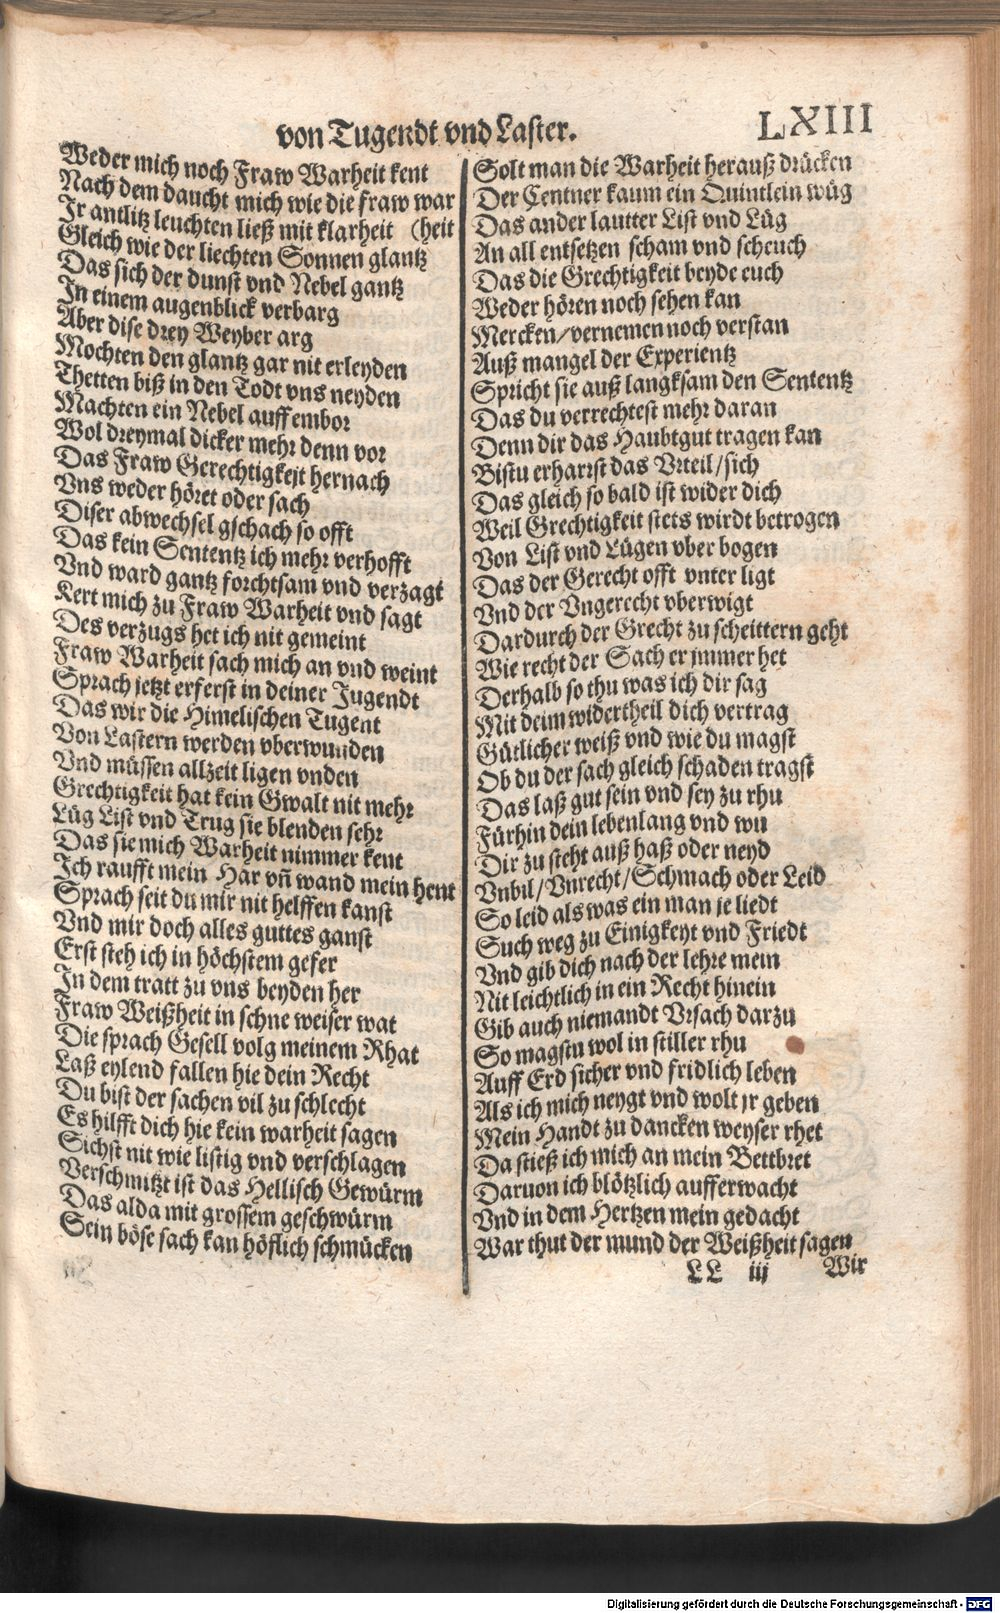 von Tugendt vnd Laster.
LXIII
Weder mich noch Fraw Warheit kent
Nach dem daucht mich wie die fraw war
Jr antlitz leuchten ließ mit klarheit (heit
Gleich wie der liechten Sonnen glantz
Das sich der dunst vnd Nebel gantz
Jn einem augenblick verbarg
Aber dise drey Weyber arg
Mochten den glantz gar nit erleyden
Thetten biß in den Todt vns neyden
Machten ein Nebel auff embor
Wol dreymal dicker mehr denn vor
Das Fraw Gerechtigkeit hernach
Vns weder höret oder sach
Diser abwechsel gschach so offt
Das kein Sententz ich mehr verhofft
Vnd ward gantz forchtsam vnd verzagt
Kert mich zu Fraw Warheit vnd sagt
Des verzugs het ich nit gemeint
Fraw Warheit sach mich an vnd weint
Sprach jetzt erferst in deiner Jugendt
Das wir die Himelischen Tugent
Von Lastern werden vberwunden
Vnd müssen allzeit ligen vnden
Grechtigkeit hat kein Gwalt nit mehr
Lüg List vnd Trug sie blenden sehr
Das sie mich Warheit nimmer kent
Jch raufft mein Har vñ wand mein hent
Sprach seit du mir nit helffen kanst
Vnd mir doch alles guttes ganst
Erst steh ich in höchstem gefer
Jn dem tratt zu vns beyden her
Fraw Weißheit in schne weiser wat
Die sprach Gesell volg meinem Rhat
Laß eylend fallen hie dein Recht
Du bist der sachen vil zu schlecht
Es hilfft dich hie kein warheit sagen
Sichst nit wie listig vnd verschlagen
Verschmitzt ist das Hellisch Gewürm
Das alda mit grossem geschwürm
Sein böse sach kan höflich schmücken
Solt man die Warheit herauß drücken
Der Centner kaum ein Quintlein wüg
Das ander lautter List vnd Lüg
An all entsetzen scham vnd scheuch
Das die Grechtigkeit beyde euch
Weder hören noch sehen kan
Mercken/vernemen noch verstan
Auß mangel der Experientz
Spricht sie auß langksam den Sententz
Das du verrechtest mehr daran
Denn dir das Haubtgut tragen kan
Bistu erharrst das Vrteil/sich
Das gleich so bald ist wider dich
Weil Grechtigkeit stets wirdt betrogen
Von List vnd Lügen vber bogen
Das der Gerecht offt vnter ligt
Vnd der Vngerecht vberwigt
Dardurch der Grecht zu scheittern geht
Wie recht der Sach er jmmer het
Derhalb so thu was ich dir sag
Mit deim widertheil dich vertrag
Gütlicher weiß vnd wie du magst
Ob du der sach gleich schaden tragst
Das laß gut sein vnd sey zu rhu
Fürhin dein lebenlang vnd wu
Dir zu steht auß haß oder neyd
Vnbil/Vnrecht/Schmach oder Leid
So leid als was ein man je liedt
Such weg zu Einigkeyt vnd Friedt
Vnd gib dich nach der lehre mein
Nit leichtlich in ein Recht hinein
Gib auch niemandt Vrsach darzu
So magstu wol in stiller rhu
Auff Erd sicher vnd fridlich leben
Als ich mich neygt vnd wolt jr geben
Mein Handt zu dancken weyser rhet
Da stieß ich mich an mein Bettbret
Daruon ich blötzlich aufferwacht
Vnd in dem Hertzen mein gedacht
War thut der mund der Weißheit sagen
LL iij Wir
Digitalisierung gefördert durch die Deutsche Forschungsgemeinschaft - DFG